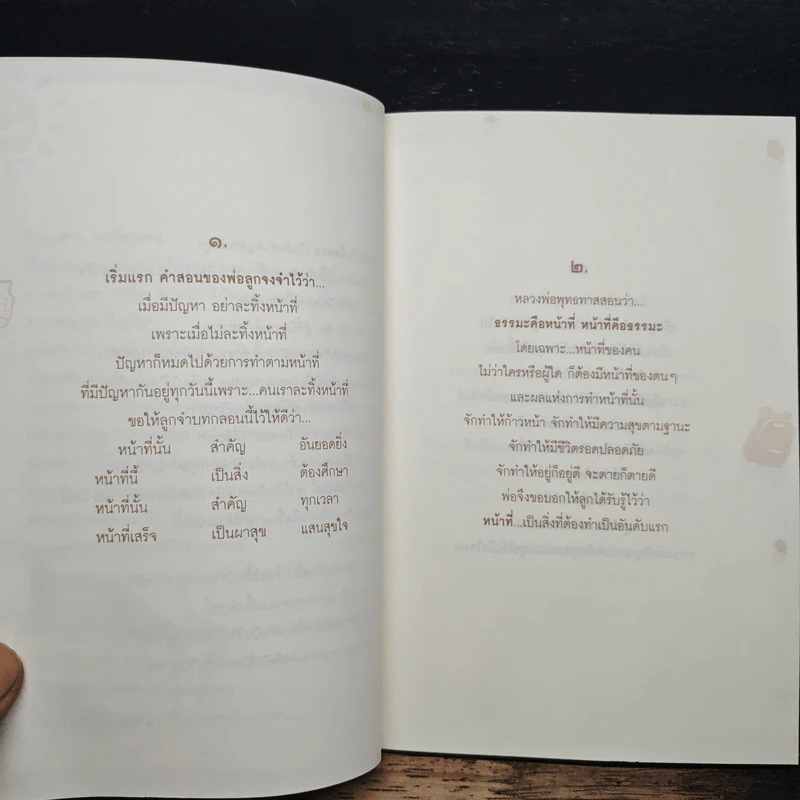 ๑.
เริ่มแรก คำสอนของพ่อลูกจงจำไว้ว่า...
เมื่อมีปัญหา อย่าละทิ้งหน้าที่
เพราะเมื่อไม่ละทิ้งหน้าที่
ปัญหาก็หมดไปด้วยการทำตามหน้าที่
ที่มีปัญหากันอยู่ทุกวันนี้เพราะ...คนเราละทิ้งหน้าที่
ขอให้ลูกจำบทกลอนนี้ไว้ให้ดีว่า...
หน้าที่นั้น สำคัญ อันยอดยิ่ง
หน้าที่นี้ เป็นสิ่ง ต้องศึกษา
หน้าที่นั้น สำคัญ ทุกเวลา
หน้าที่เสร็จ เป็นผาสุข แสนสุขใจ
๒.
หลวงพ่อพุทธทาสสอนว่า...
ธรรมะคือหน้าที่ หน้าที่คือธรรมะ
โดยเฉพาะ...หน้าที่ของคน
ไม่ว่าใครหรือผู้ใด ก็ต้องมีหน้าที่ของตนๆ
และผลแห่งการทำหน้าที่นั้น
จักทำให้ก้าวหน้า จักทำให้มีความสุขตามฐานะ
จักทำให้มีชีวิตรอดปลอดภัย
จักทำให้อยู่ก็อยู่ดี จะตายก็ตายดี
พ่อจึงขอบอกให้ลูกได้รับรู้ไว้ว่า
หน้าที่...เป็นสิ่งที่ต้องทำเป็นอันดับแรก